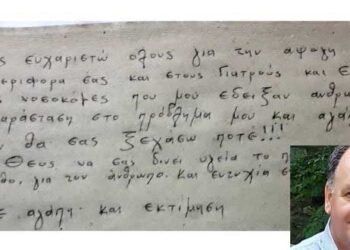 ς ευχαριστώ όλους για την αψογη
εριφορα σας και στους Γιατρούς και
νοσοκόμες που μου εδειξαν ανθρω
αράσταση στο πρόβλημα μου και αγά
θα σας ξεχάσω ποτέ!!!
Θεος να σας δινει υγεία το
θο, για τον άνθρωπο. Και ευτυχία
αγάπη και εκτίμηση